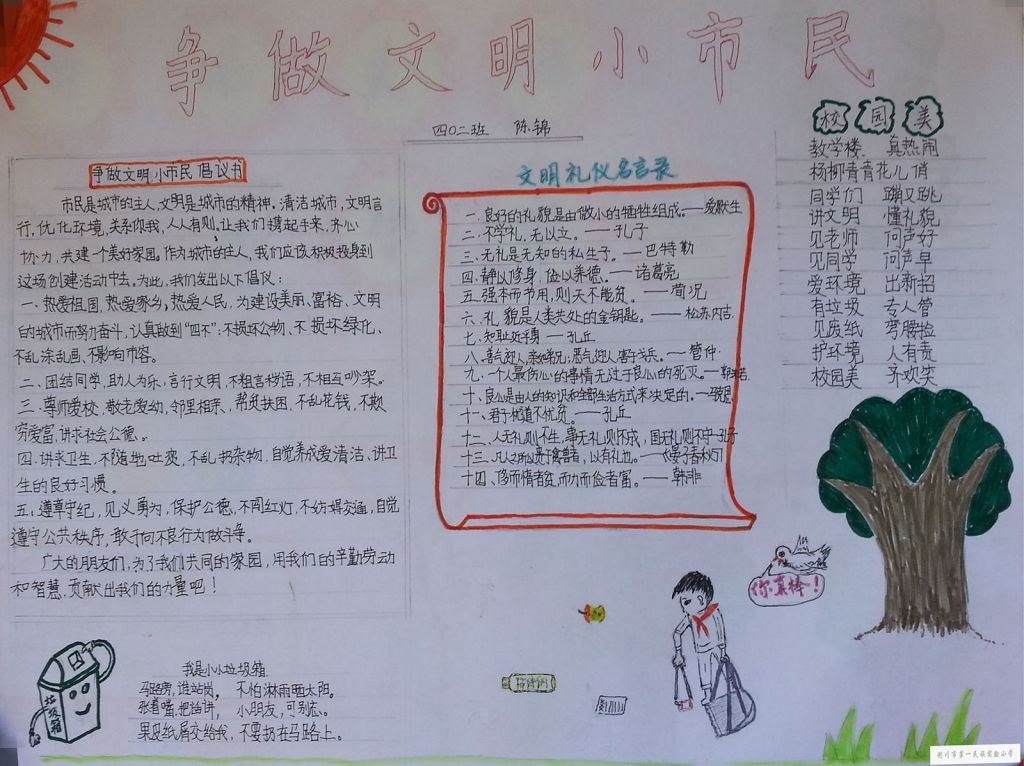 争做文明小市民
四〇二班 陈锦
争做文明小市民倡议书
市民是城市的主人,文明是城市的精神。清洁城市,文明言
行,优化环境,关系你我,人人有则。让我们携起手来,齐心
协力,共建一个美好家园。作为城市的主人,我们应该积极投身到
这场创建活动中去。为此,我们发出以下倡议:
一、热爱祖国,热爱家乡,热爱人民,为建设美丽、富裕、文明
的城市而努力奋斗,认真做到“四不”:不损坏公物、不损坏绿化、
不乱涂乱画、不影响市容。
二、团结同学,助人为乐,言行文明,不粗言秽语,不相互吵架。
三、尊师爱校,敬老爱幼,邻里相亲,帮贫扶困,不乱花钱,不欺
穷爱富,讲求社会公德。
四、讲求卫生,不随地吐痰,不乱扔杂物,自觉养成爱清洁、讲卫
生的良好习惯。
五、遵章守纪,见义勇为,保护公德,不闯红灯,不妨碍交通,自觉
遵守公共秩序,敢于向不良行为做斗争。
广大的朋友们,为了我们共同的家园,用我们的辛勤劳动
和智慧,贡献出我们的力量吧!
文明礼仪名言录
一、良好的礼貌是由做小的牺牲组成。——爱默生
二、不学礼,无以立。——孔子
三、无礼是无知的私生子。——巴特勒
四、静以修身,俭以养德。——诸葛亮
五、强本而节用,则天不能贫。——荀况
六、礼貌是人类共处的金钥匙。——松苏内吉
七、知耻近乎勇——孔丘
八、善气迎人,亲如弟兄;恶气迎人,害于戈兵。——管仲
九、一个人最伤心的事情无过于良心的死灭。——郭沫若
十、良心是由人的知识和全部生活方式来决定的。
十一、君子忧道不忧贫。——孔丘
十二、人无礼则不生,事无礼则不成,国无礼则不宁—孔子
十三、凡人之所以贵于禽兽者,以有礼也。——《晏子春秋》
十四、侈而惰者贫,而力而俭者富。——韩非
校园美
教学楼 真热闹
杨柳青青花儿俏
同学们 蹦又跳
讲文明 懂礼貌
见老师 问声好
见同学 问声早
爱环境 出新招
有垃圾 专人管
见废纸 弯腰捡
护环境 人有责
校园美 齐欢笑
你真棒!
垃圾箱
我是小小垃圾箱
马路旁,谁站岗, 不怕淋雨晒太阳。
张着嘴,把话讲, 小朋友,可别忘。
果皮纸屑交给我,不要扔在马路上。
荆州市第一民族实验小学